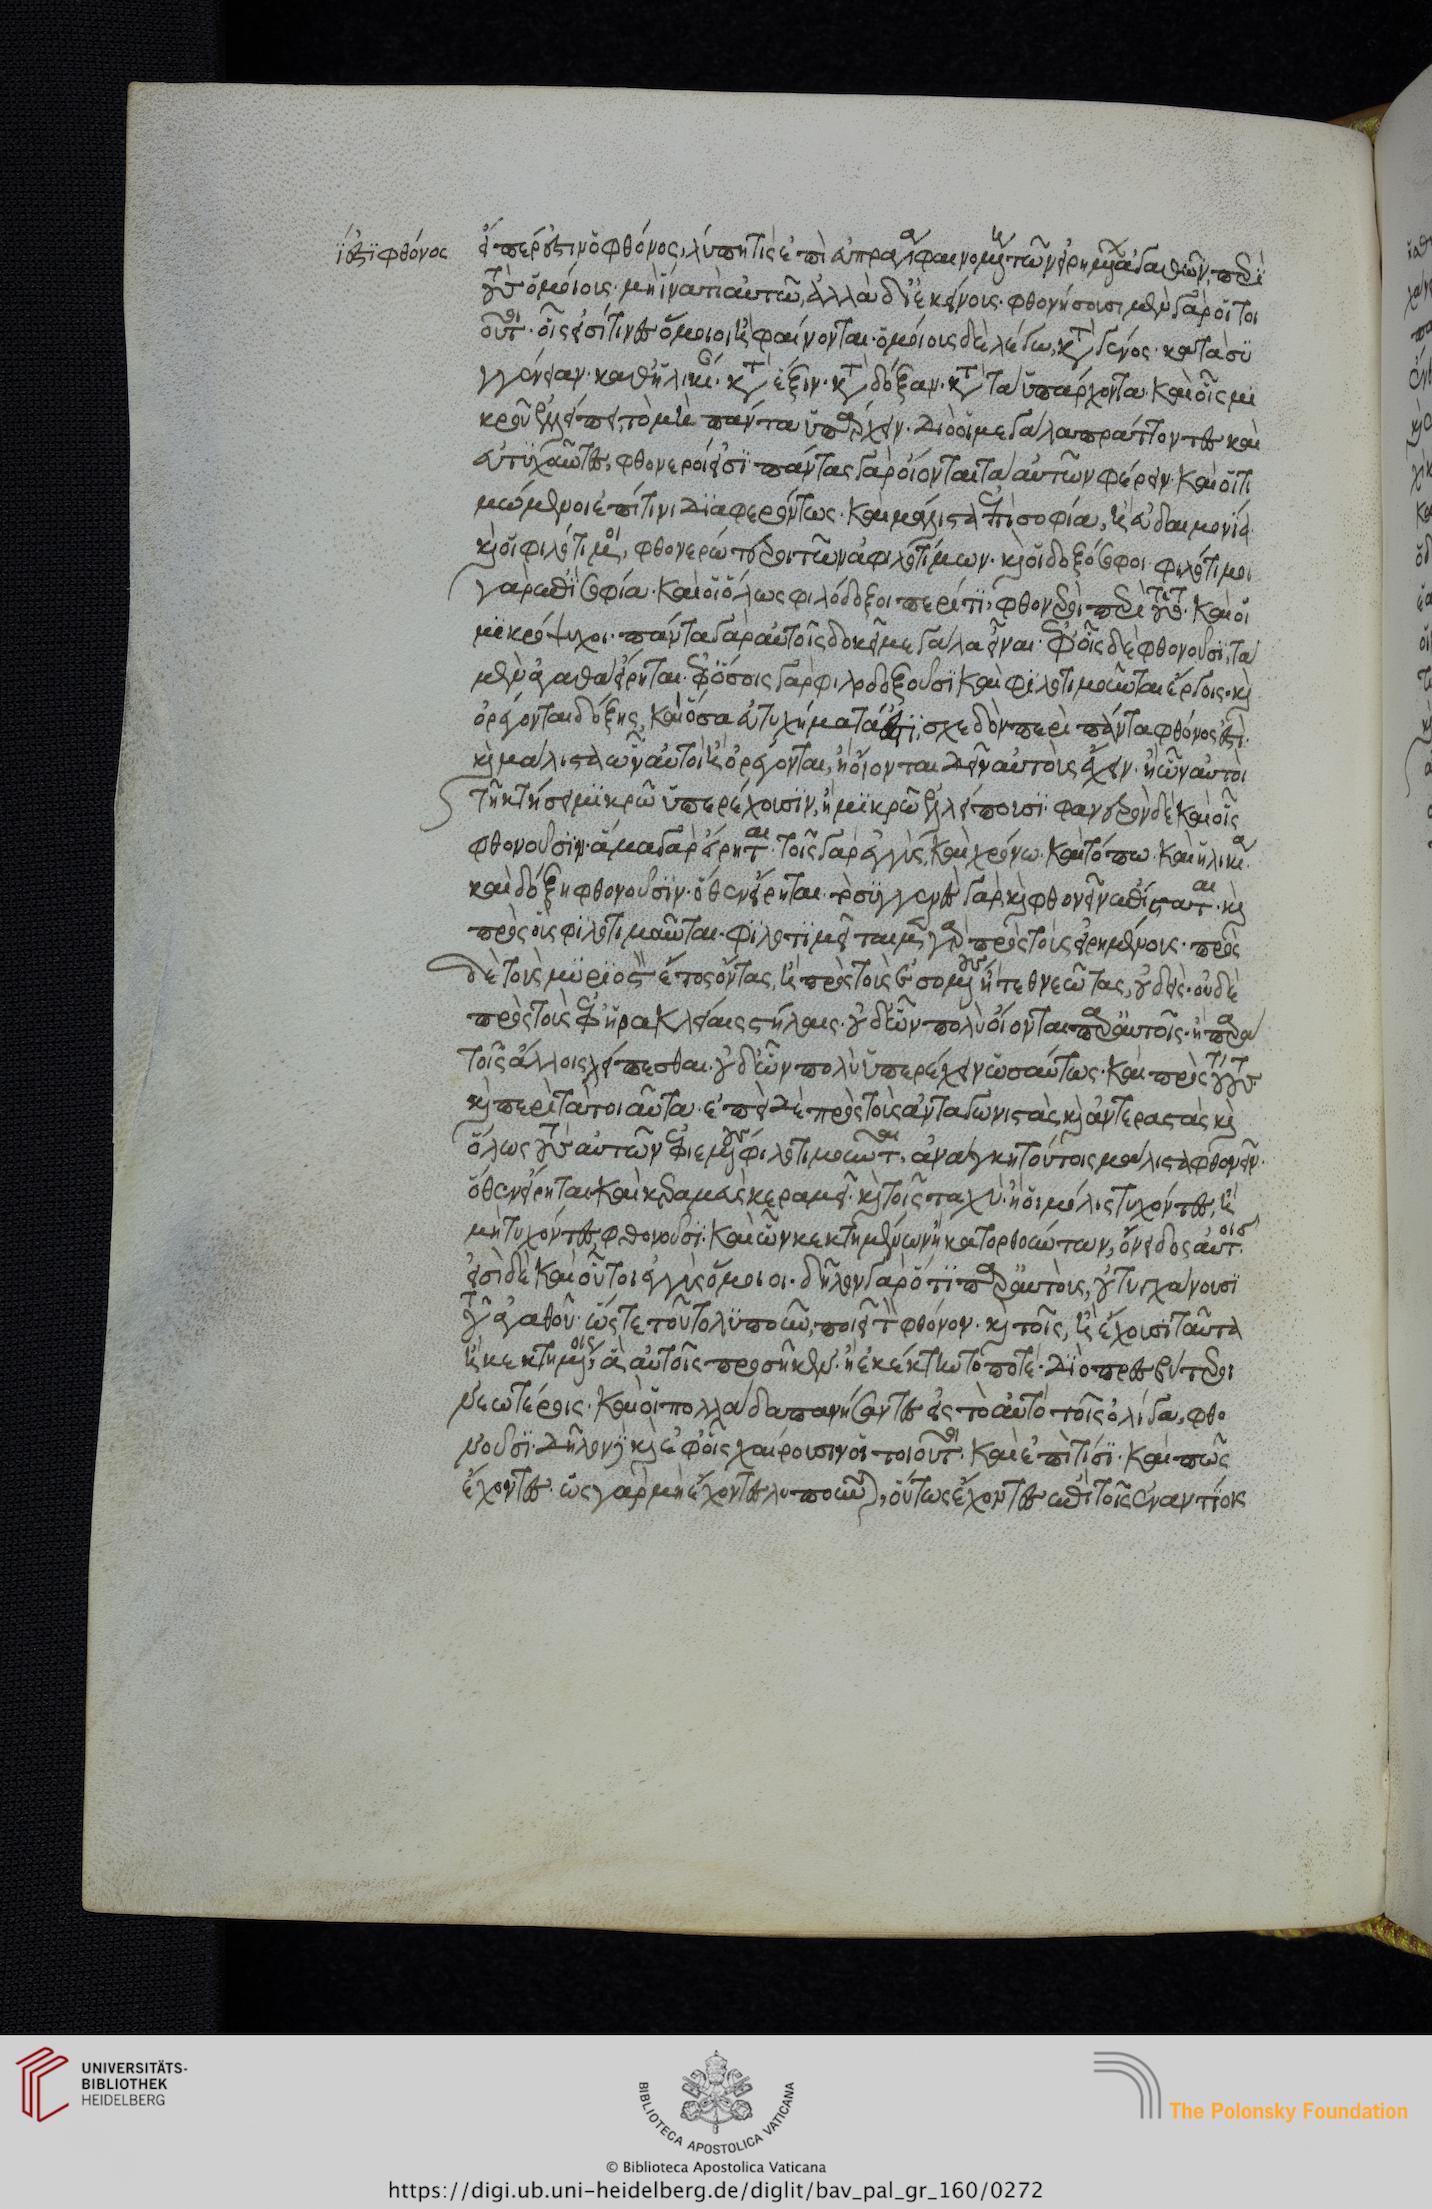 τί ἐστι φθόνος
εἴπερ ἐστὶν ὁ φθόνος, λύπη τις ἐπὶ εὐπραγία φαινομένη τῶν εἰρημένων ἀγαθῶν, περὶ
τοὺς ὁμοίους· μὴ ἵνα τι αὐτῶ, ἀλλὰ δι' ἐκείνους· φθονήσουσι μὲν γὰρ οἱ τοι
οῦτοι· οἷς εἰσί τινες ὅμοιοι ἢ φαίνονται· ὁμοίους δὲ λέγω, κατὰ γένος· κατὰ συ
γγένειαν· καθ' ἡλικίαν· κατὰ ἕξιν· κατὰ δόξαν· κατὰ τὰ ὑπάρχοντα· καὶ οἷς μι
κροῦ ἐλλείπει, τὸ μὴ πάντα ὑπάρχειν· διὸ οἱ μεγάλα πράττοντες καὶ
εὐτυχοῦντες, φθονεροί εἰσι· πάντας γὰρ οἴονται τὰ αὐτῶν φέρειν· καὶ οἱ τι
μώμενοι ἐπί τινι διαφερόντως· καὶ μάλιστα ἐπὶ σοφία, ἢ εὐδαιμονία·
καὶ οἱ φιλότιμοι, φθονερώτεροι τῶν ἀφιλοτίμων· καὶ οἱ δοξόσοφοι· φιλότιμοι
γὰρ ἐπὶ σοφία· καὶ οἱ ὅλως φιλόδοξοι περί τι, φθονεροὶ περὶ τοῦτο· καὶ οἱ
μικρόψυχοι· πάντα γὰρ αὐτοῖς δοκεῖ μεγάλα εἶναι· ἐφ' οἷς δὲ φθονοῦσι, τὰ
μὲν ἀγαθὰ εἴρηται· ἐφ' ὅσοις γὰρ φιλοδοξοῦσι καὶ φιλοτιμοῦνται ἔργοις· καὶ
ὀρέγονται δόξης, καὶ ὅσα εὐτυχήματά ἐστι, σχεδὸν περὶ πάντα φθόνος ἐστί·
καὶ μάλιστα ὧν αὐτοὶ ἢ ὀρέγονται, ἢ οἴονται δεῖν αὐτοὺς ἔχειν· ἢ ὧν αὐτοὶ
τῆ κτήσει μικρῶ ὑπερέχουσιν, ἢ μικρῶ ἐλλείπουσι· φανερὸν δὲ καὶ οἷς
φθονοῦσιν· ἅμα γὰρ εἴρηται· τοῖς γὰρ ἐγγὺς, καὶ χρόνω· καὶ τόπω· καὶ ἡλικία·
καὶ δόξη φθονοῦσιν· ὅθεν εἴρηται· τὸ συγγενὲς γὰρ καὶ φθονεῖν ἐπίσταται· καὶ
πρὸς οὓς φιλοτιμοῦνται· φιλοτιμεῖται μὲν γὰρ πρὸς τοὺς εἰρημένους· πρὸς
δὲ τοὺς μυριοστὸν ἔτος ὄντας, ἢ πρὸς τοὺς ἐσομένους ἢ τεθνεῶτας, οὐδείς· οὐδὲ
πρὸς τοὺς ἐφ' ἡρακλείαις στήλαις· οὐδ' ὧν πολὺ οἴονται παρ' αὐτοῖς· ἢ παρὰ
τοῖς ἄλλοις λείπεσθαι· οὐδ' ὧν πολὺ ὑπερέχειν ὡσαύτως· καὶ πρὸς τούτους·
καὶ περὶ τὰ τοιαῦτα· ἐπεὶ δὲ πρὸς τοὺς ἀνταγωνιστὰς καὶ ἀντεραστὰς καὶ
ὅλως τοὺς αὐτῶν ἐφιεμένους φιλοτιμοῦνται, ἀνάγκη τούτοις μάλιστα φθονεῖν·
ὅθεν εἴρηται καὶ κεραμεὺς κεραμεῖ· καὶ τοῖς ταχὺ ἢ οἱ μόλις τυχόντες, ἢ
μὴ τυχόντες φθονοῦσι· καὶ ὧν κεκτημένων ἢ κατορθούντων, ὄνειδος αὐτοῖς·
εἰσὶ δὲ καὶ οὗτοι ἐγγὺς ὅμοιοι· δῆλον γὰρ ὅτι παρ' αὐτοὺς, οὐ τυγχάνουσι
τοῦ ἀγαθοῦ· ὥστε τοῦτο λυποῦν, ποιεῖ τὸν φθόνον· καὶ τοῖς, ἢ ἔχουσι ταῦτα
ἢ κεκτημένοις, ἃ αὐτοῖς προσῆκεν· ἢ ἐκέκτηντό ποτε· διὸ πρεσβύτεροι
νεωτέροις· καὶ οἱ πολλὰ δαπανήσαντες εἰς τὸ αὐτὸ τοῖς ὀλίγα, φθο
νοῦσι· δῆλον δὲ καὶ ἐφ' οἷς χαίρουσιν οἱ τοιοῦτοι· καὶ ἐπὶ τίσι· καὶ πῶς
ἔχοντες· ὡς γὰρ μὴ ἔχοντες λυποῦνται, οὕτως ἔχοντες ἐπὶ τοῖς ἐναντίοις
UNIVERSITÄTS-
BIBLIOTHEK
HEIDELBERG
BIBLIOTECA APOSTOLICA VATICANA
The Polonsky Foundation
© Biblioteca Apostolica Vaticana
https://digi.ub.uni-heidelberg.de/diglit/bav_pal_gr_160/0272